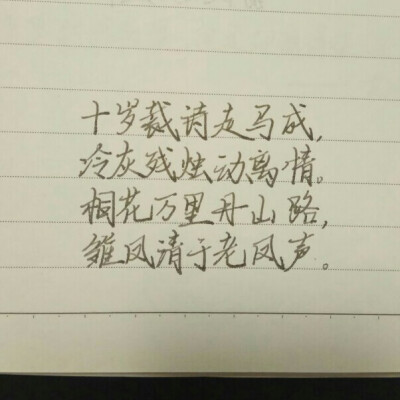 十岁裁诗走马成，
冷灰残烛动离情。
桐花万里丹山路，
雏凤清于老凤声。